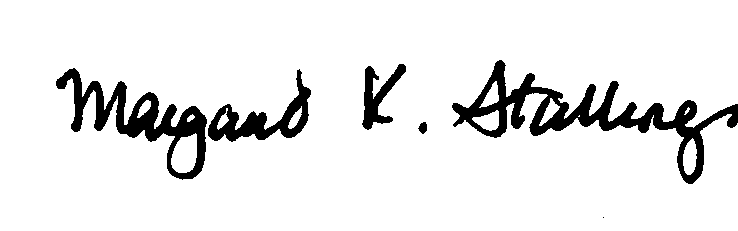 Margand K. Stallings